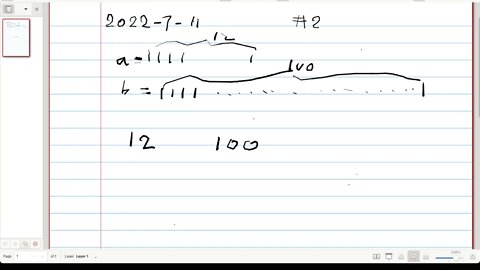 2022-7-11 #2
12
a = 1 1 1 1 1
100
b = 1 1 1 1 ................ 1
12 100
Page 1 of 1 Layer Layer 1